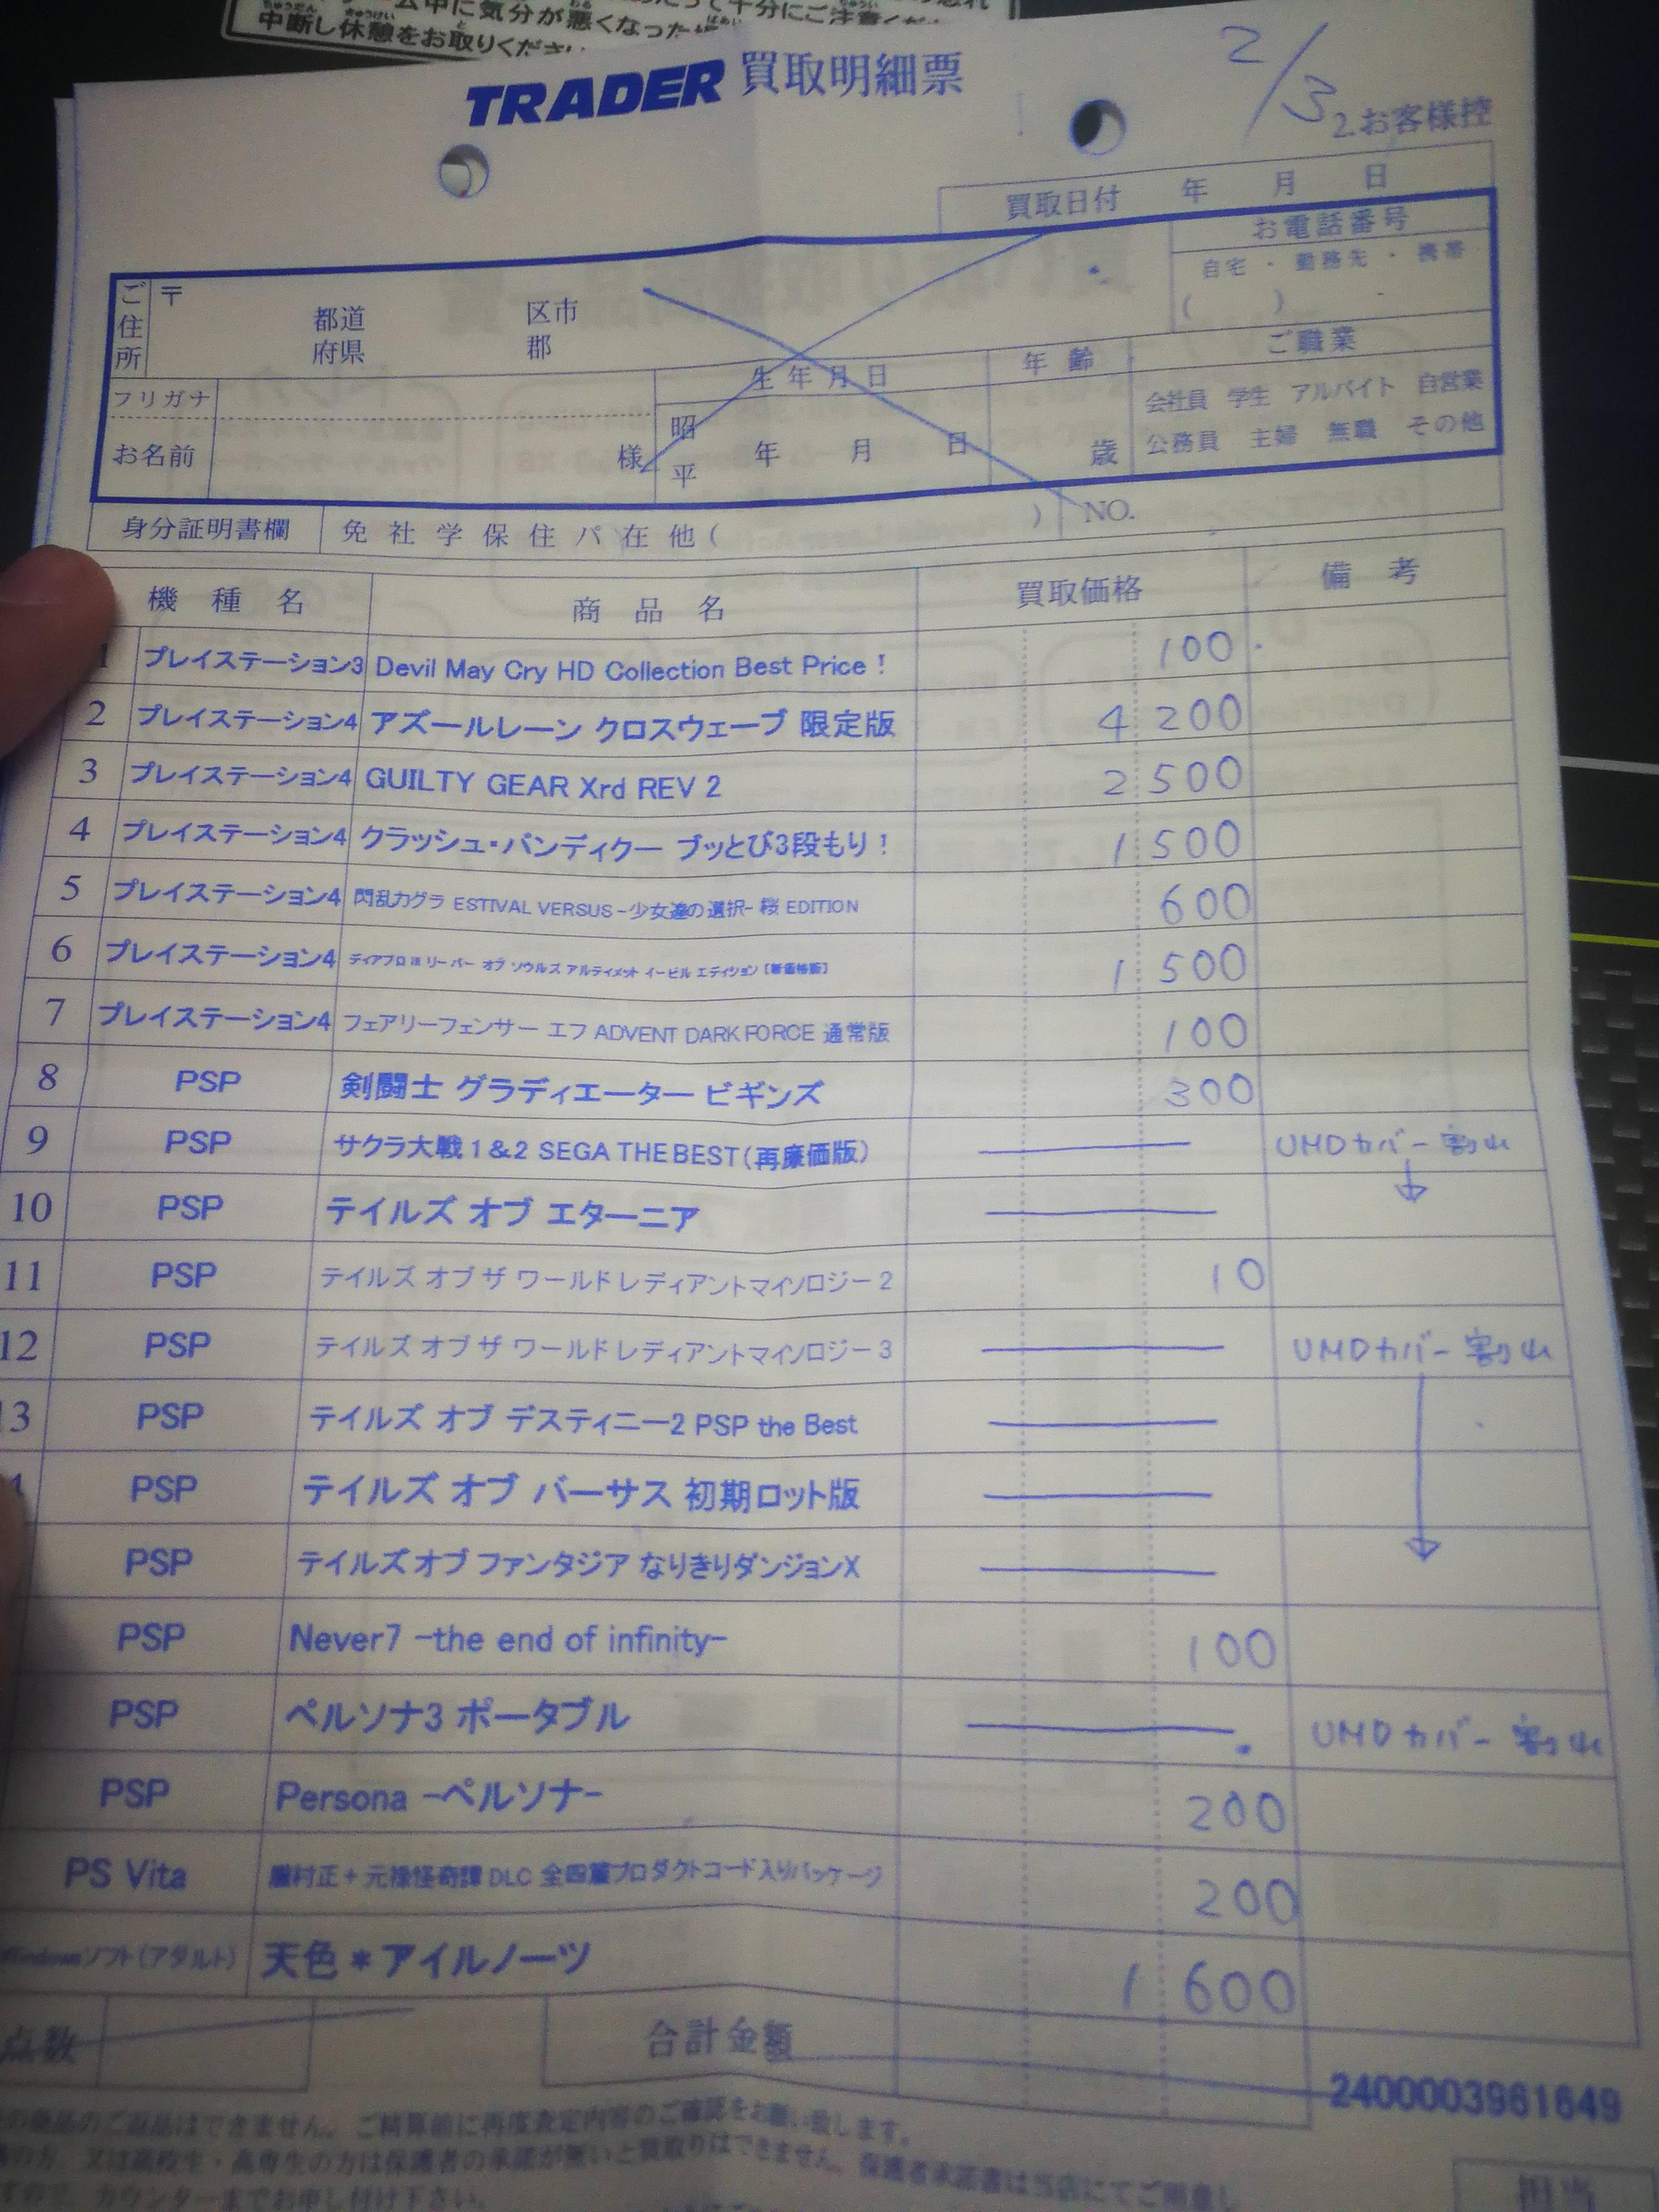 中断し休憩をお取りください
TRADER 買取明細票
2/3
2.お客様控
買取日付 年 月 日
お電話番号
自宅・勤務先・携帯
( )
ご住所 〒
都道府県 区市郡
フリガナ
お名前 様
生年月日 年齢 ご職業
昭平 年 月 日 歳
会社員 学生 アルバイト 自営業
公務員 主婦 無職 その他
身分証明書欄 免 社 学 保 住 パ 在 他 ( ) NO.
機種名 商品名 買取価格 備考
1 プレイステーション3 Devil May Cry HD Collection Best Price! 100
2 プレイステーション4 アズールレーン クロスウェーブ 限定版 4 200
3 プレイステーション4 GUILTY GEAR Xrd REV 2 2 500
4 プレイステーション4 クラッシュ・バンディクー ブッとび3段もり! 1 500
5 プレイステーション4 閃乱カグラ ESTIVAL VERSUS -少女達の選択- 桜 EDITION 600
6 プレイステーション4 ディアブロ III リーパー オブ ソウルズ アルティメット イービル エディション [新価格版] 1 500
7 プレイステーション4 フェアリーフェンサー エフ ADVENT DARK FORCE 通常版 100
8 PSP 剣闘士 グラディエーター ビギンズ 300
9 PSP サクラ大戦1&2 SEGA THE BEST(再廉価版) UMDカバー割れ
10 PSP テイルズ オブ エターニア ↓
11 PSP テイルズ オブ ザ ワールド レディアントマイソロジー 2 10
12 PSP テイルズ オブ ザ ワールド レディアントマイソロジー 3 UMDカバー割れ
13 PSP テイルズ オブ デスティニー2 PSP the Best
PSP テイルズ オブ バーサス 初期ロット版
PSP テイルズ オブ ファンタジア なりきりダンジョンX ↓
PSP Never7 -the end of infinity- 100
PSP ペルソナ3 ポータブル UMDカバー割れ
PSP Persona -ペルソナ- 200
PS Vita 朧村正+元禄怪奇譚 DLC 全四篇プロダクトコード入りパッケージ 200
Windowsソフト(アダルト) 天色*アイルノーツ 1 600
点数 合計金額
2400003961649
の商品のご返品はできません。ご精算前に再度査定内容のご確認をお願い致します。
の方、又は高校生・高専生の方は保護者の承諾が無いと買取りはできません。保護者承諾書は当店にてご用意し
ますので、カウンターまでお申し付け下さい。
担当